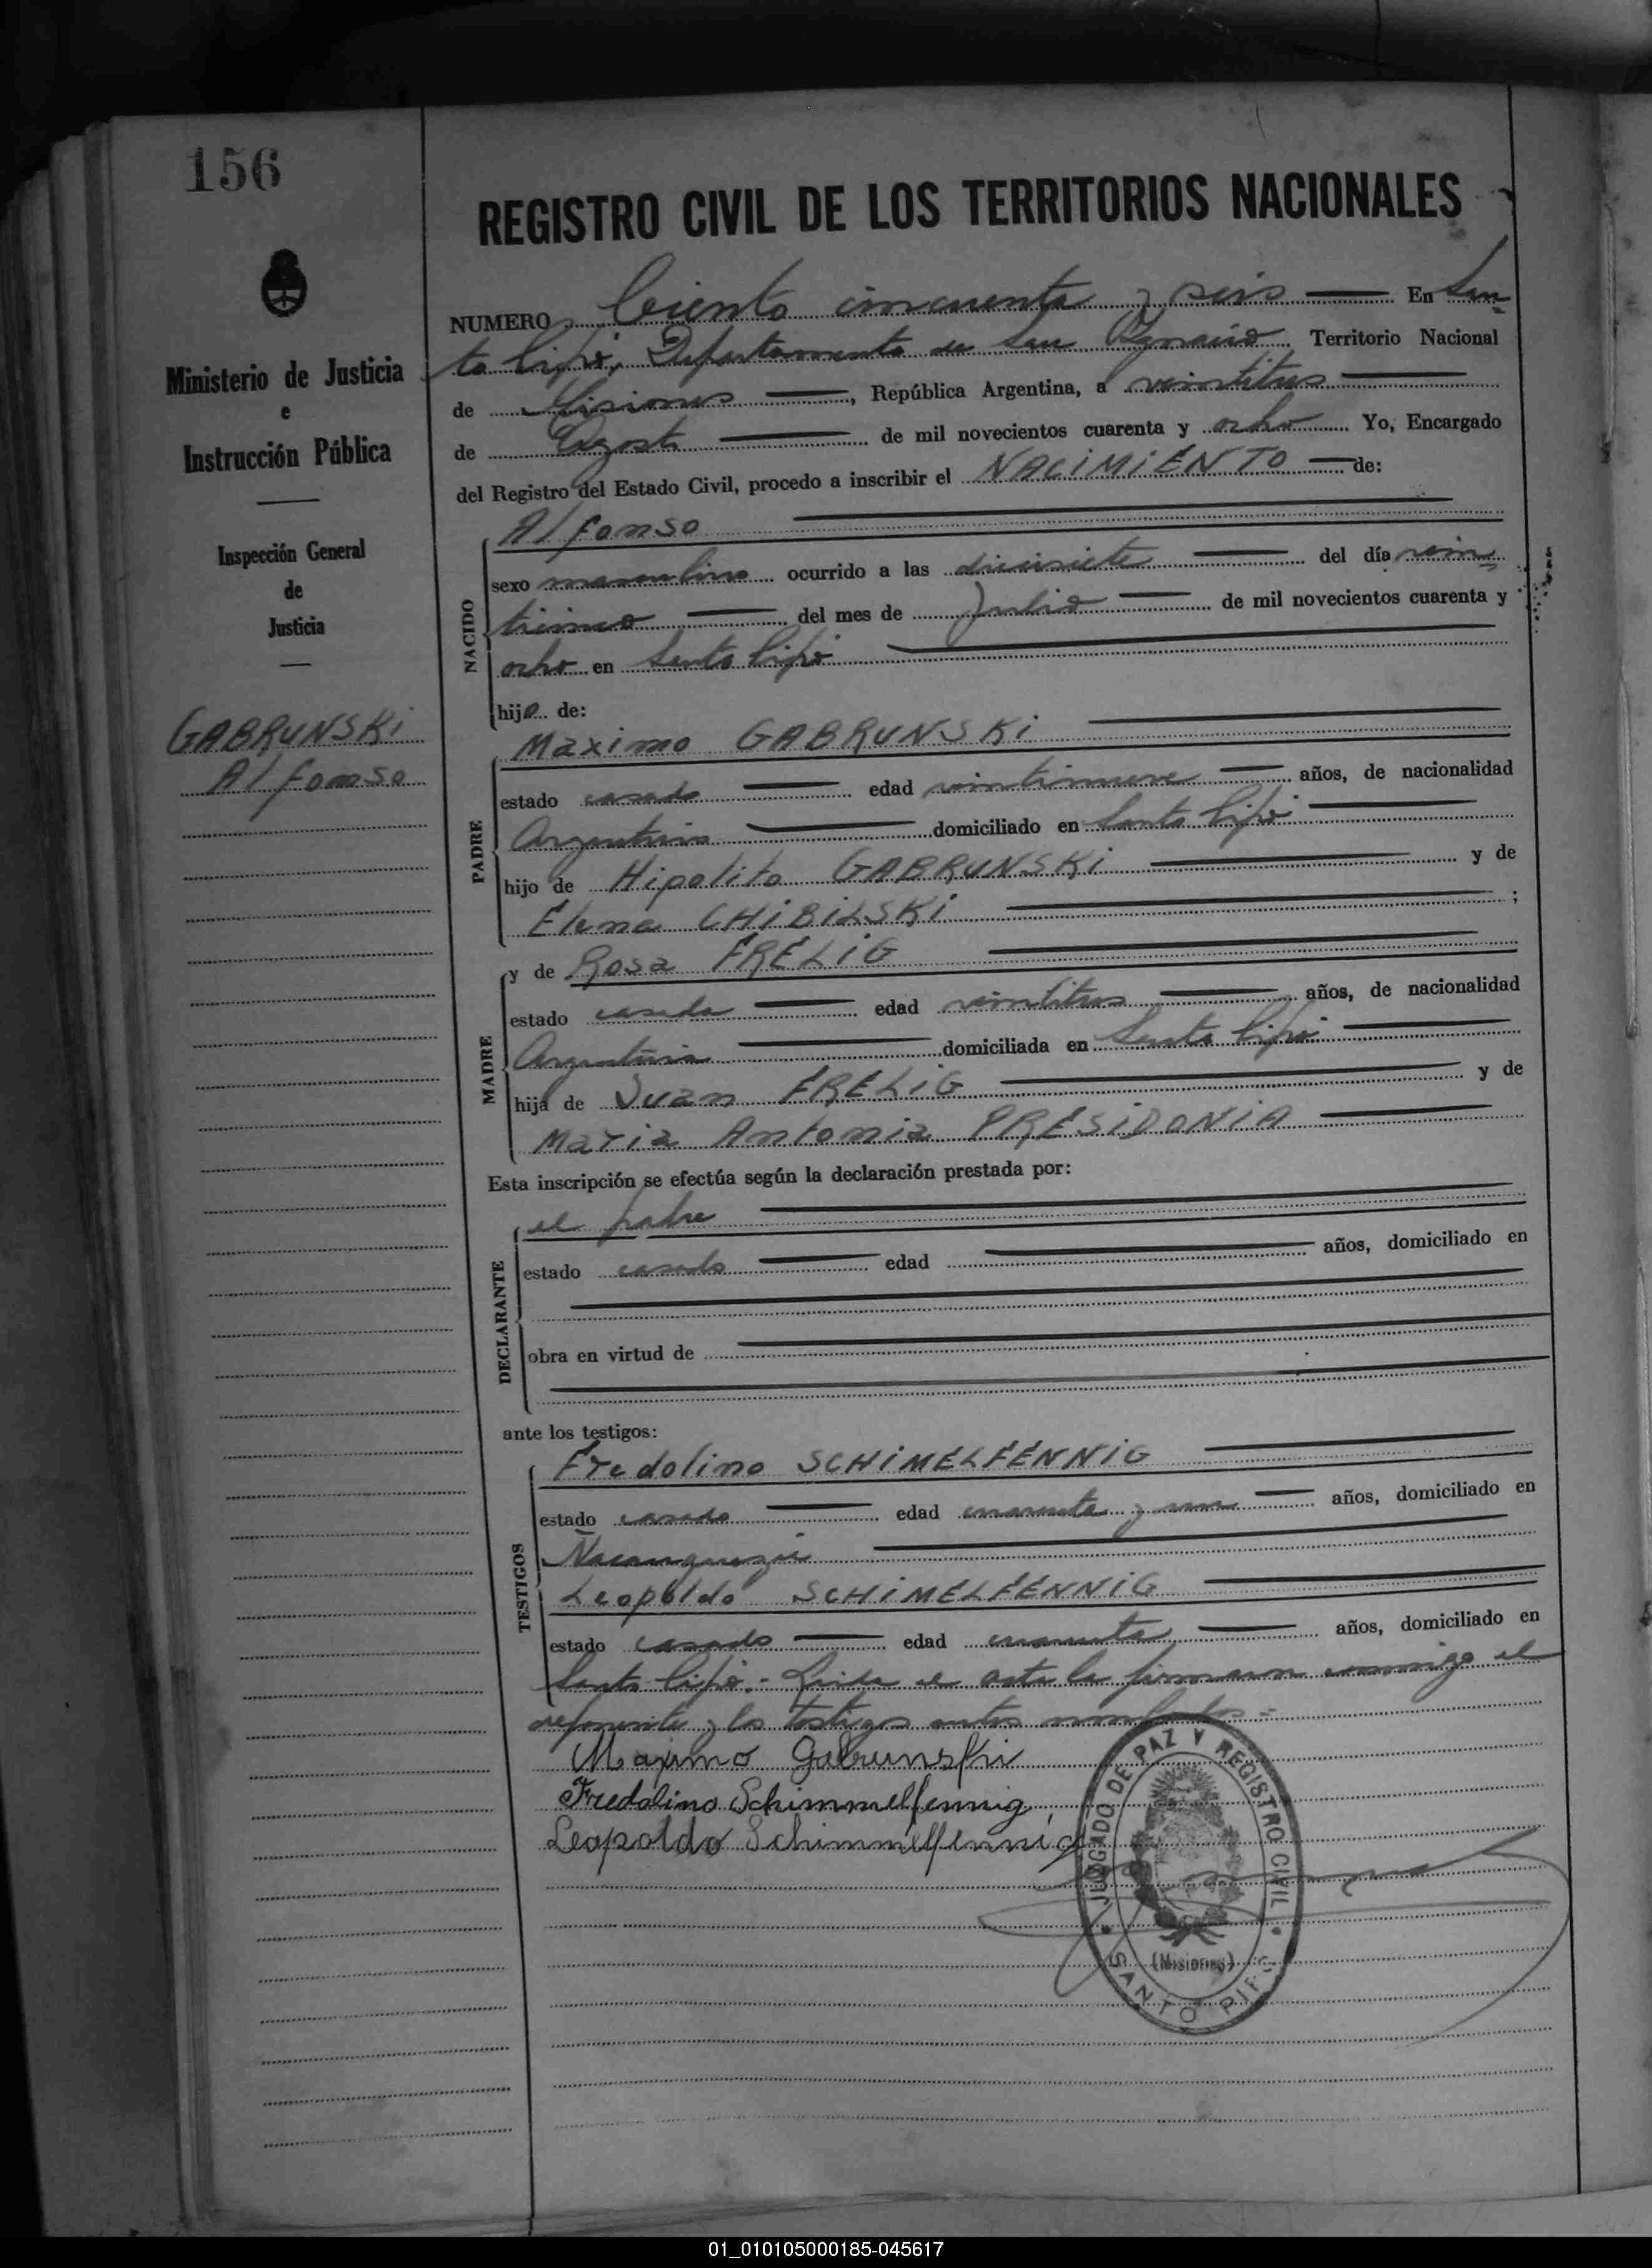 156
REGISTRO CIVIL DE LOS TERRITORIOS NACIONALES
NUMERO Ciento cincuenta y seis En San
to Pipó, Departamento de San Ignacio Territorio Nacional
de Misiones, República Argentina, a veintitres
de Agosto de mil novecientos cuarenta y ocho Yo, Encargado
del Registro del Estado Civil, procedo a inscribir el NACIMIENTO de:
Ministerio de Justicia
e
Instrucción Pública
Inspección General
de
Justicia
GABRUNSKI
Alfonso
NACIDO
Alfonso
sexo masculino ocurrido a las diecisiete del día vein
del mes de Julio de mil novecientos cuarenta y
ocho en Santo Pipó
hijo de:
PADRE
Maximo GABRUNSKI
estado casado edad veintinueve años, de nacionalidad
Argentina domiciliado en Santo Pipó
hijo de Hipolito GABRUNSKI y de
Elena CHIBILSKI ;
MADRE
y de Rosa FRELIG
estado casada edad veintitres años, de nacionalidad
Argentina domiciliada en Santo Pipó
hija de Juan FRELIG y de
Maria Antonia PRESIDONIA
Esta inscripción se efectúa según la declaración prestada por:
DECLARANTE
el padre
estado casado edad años, domiciliado en
obra en virtud de
ante los testigos:
TESTIGOS
Fredolino SCHIMELFENNIG
estado casado edad cuarenta y un años, domiciliado en
Ñacanguazú
Leopoldo SCHIMELFENNIG
estado casado edad cuarenta años, domiciliado en
Santo Pipó.- Leida el acta la firmaron conmigo el
deponente y los testigos antes nombrados -
Maximo Gabrunski
Fredolino Schimmelfennig
Leopoldo Schimmelfennig
JUZGADO DE PAZ Y REGISTRO CIVIL
(Misiones)
SANTO PIPÓ
01_010105000185-045617